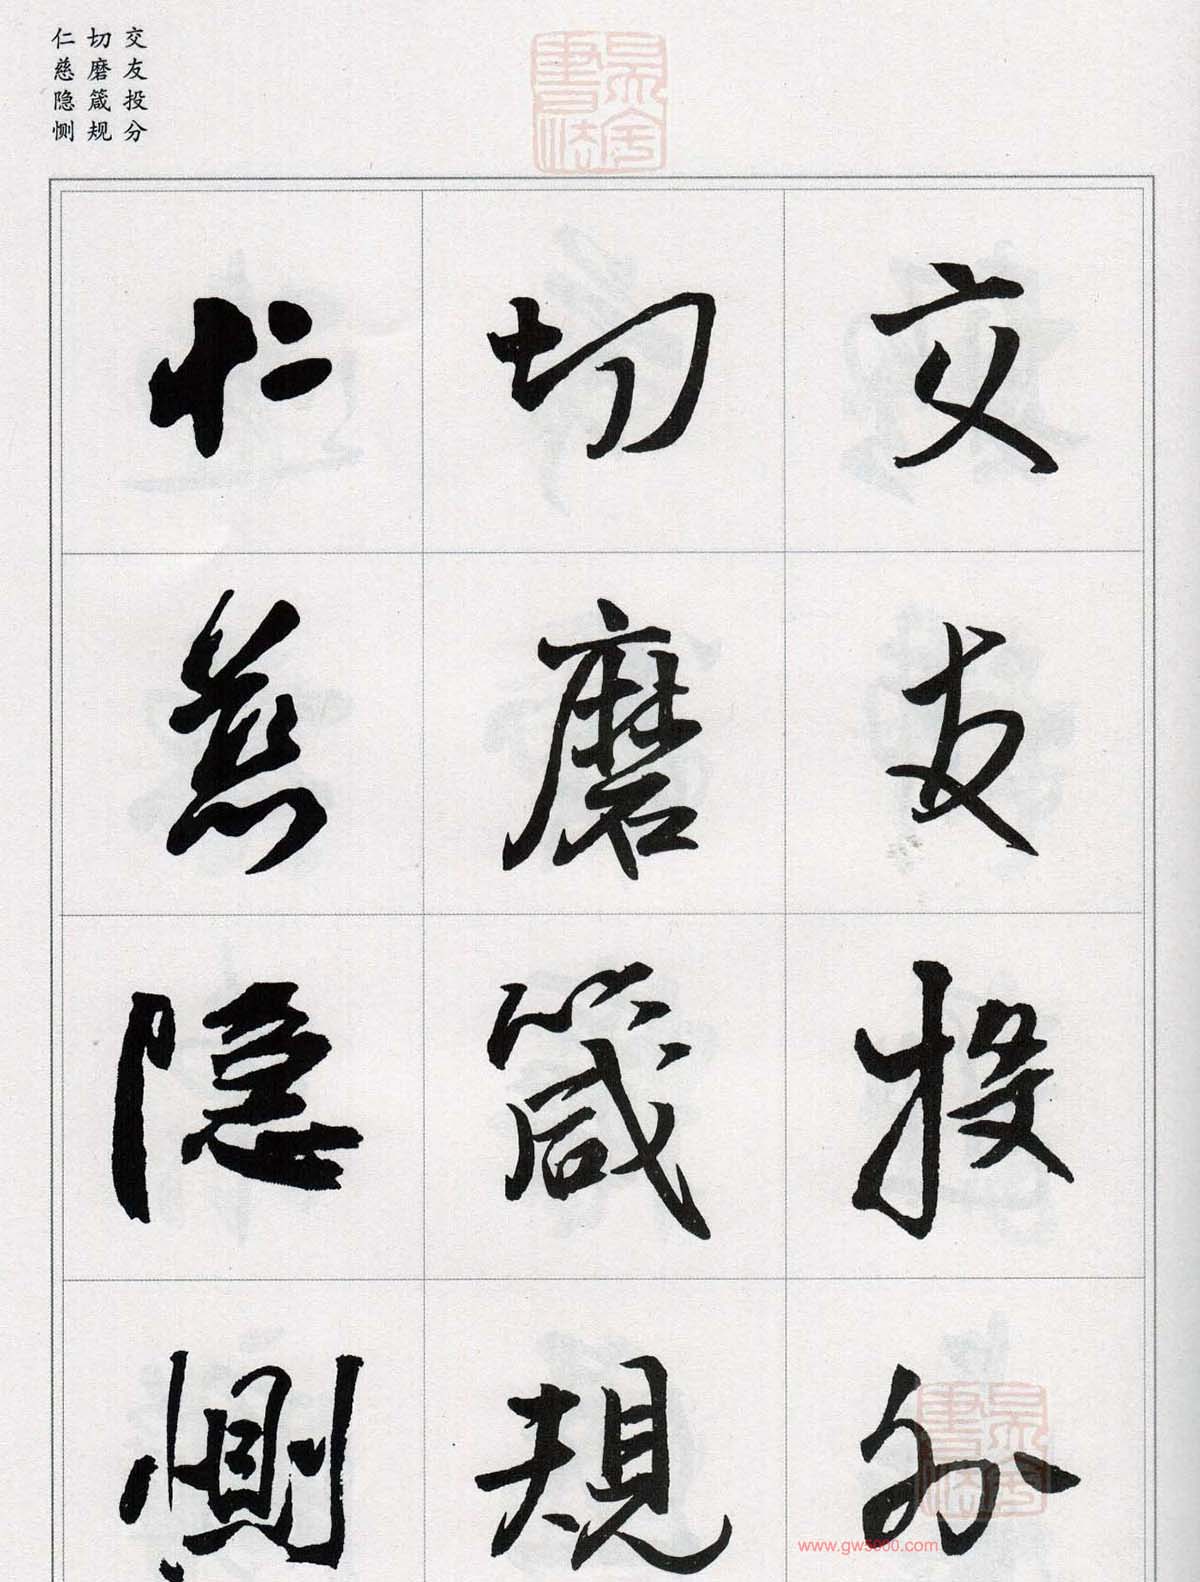 交友投分
切磨箴规
仁慈隐恻
交友投分
切磨箴規
仁慈隐惻
www.gw5000.com